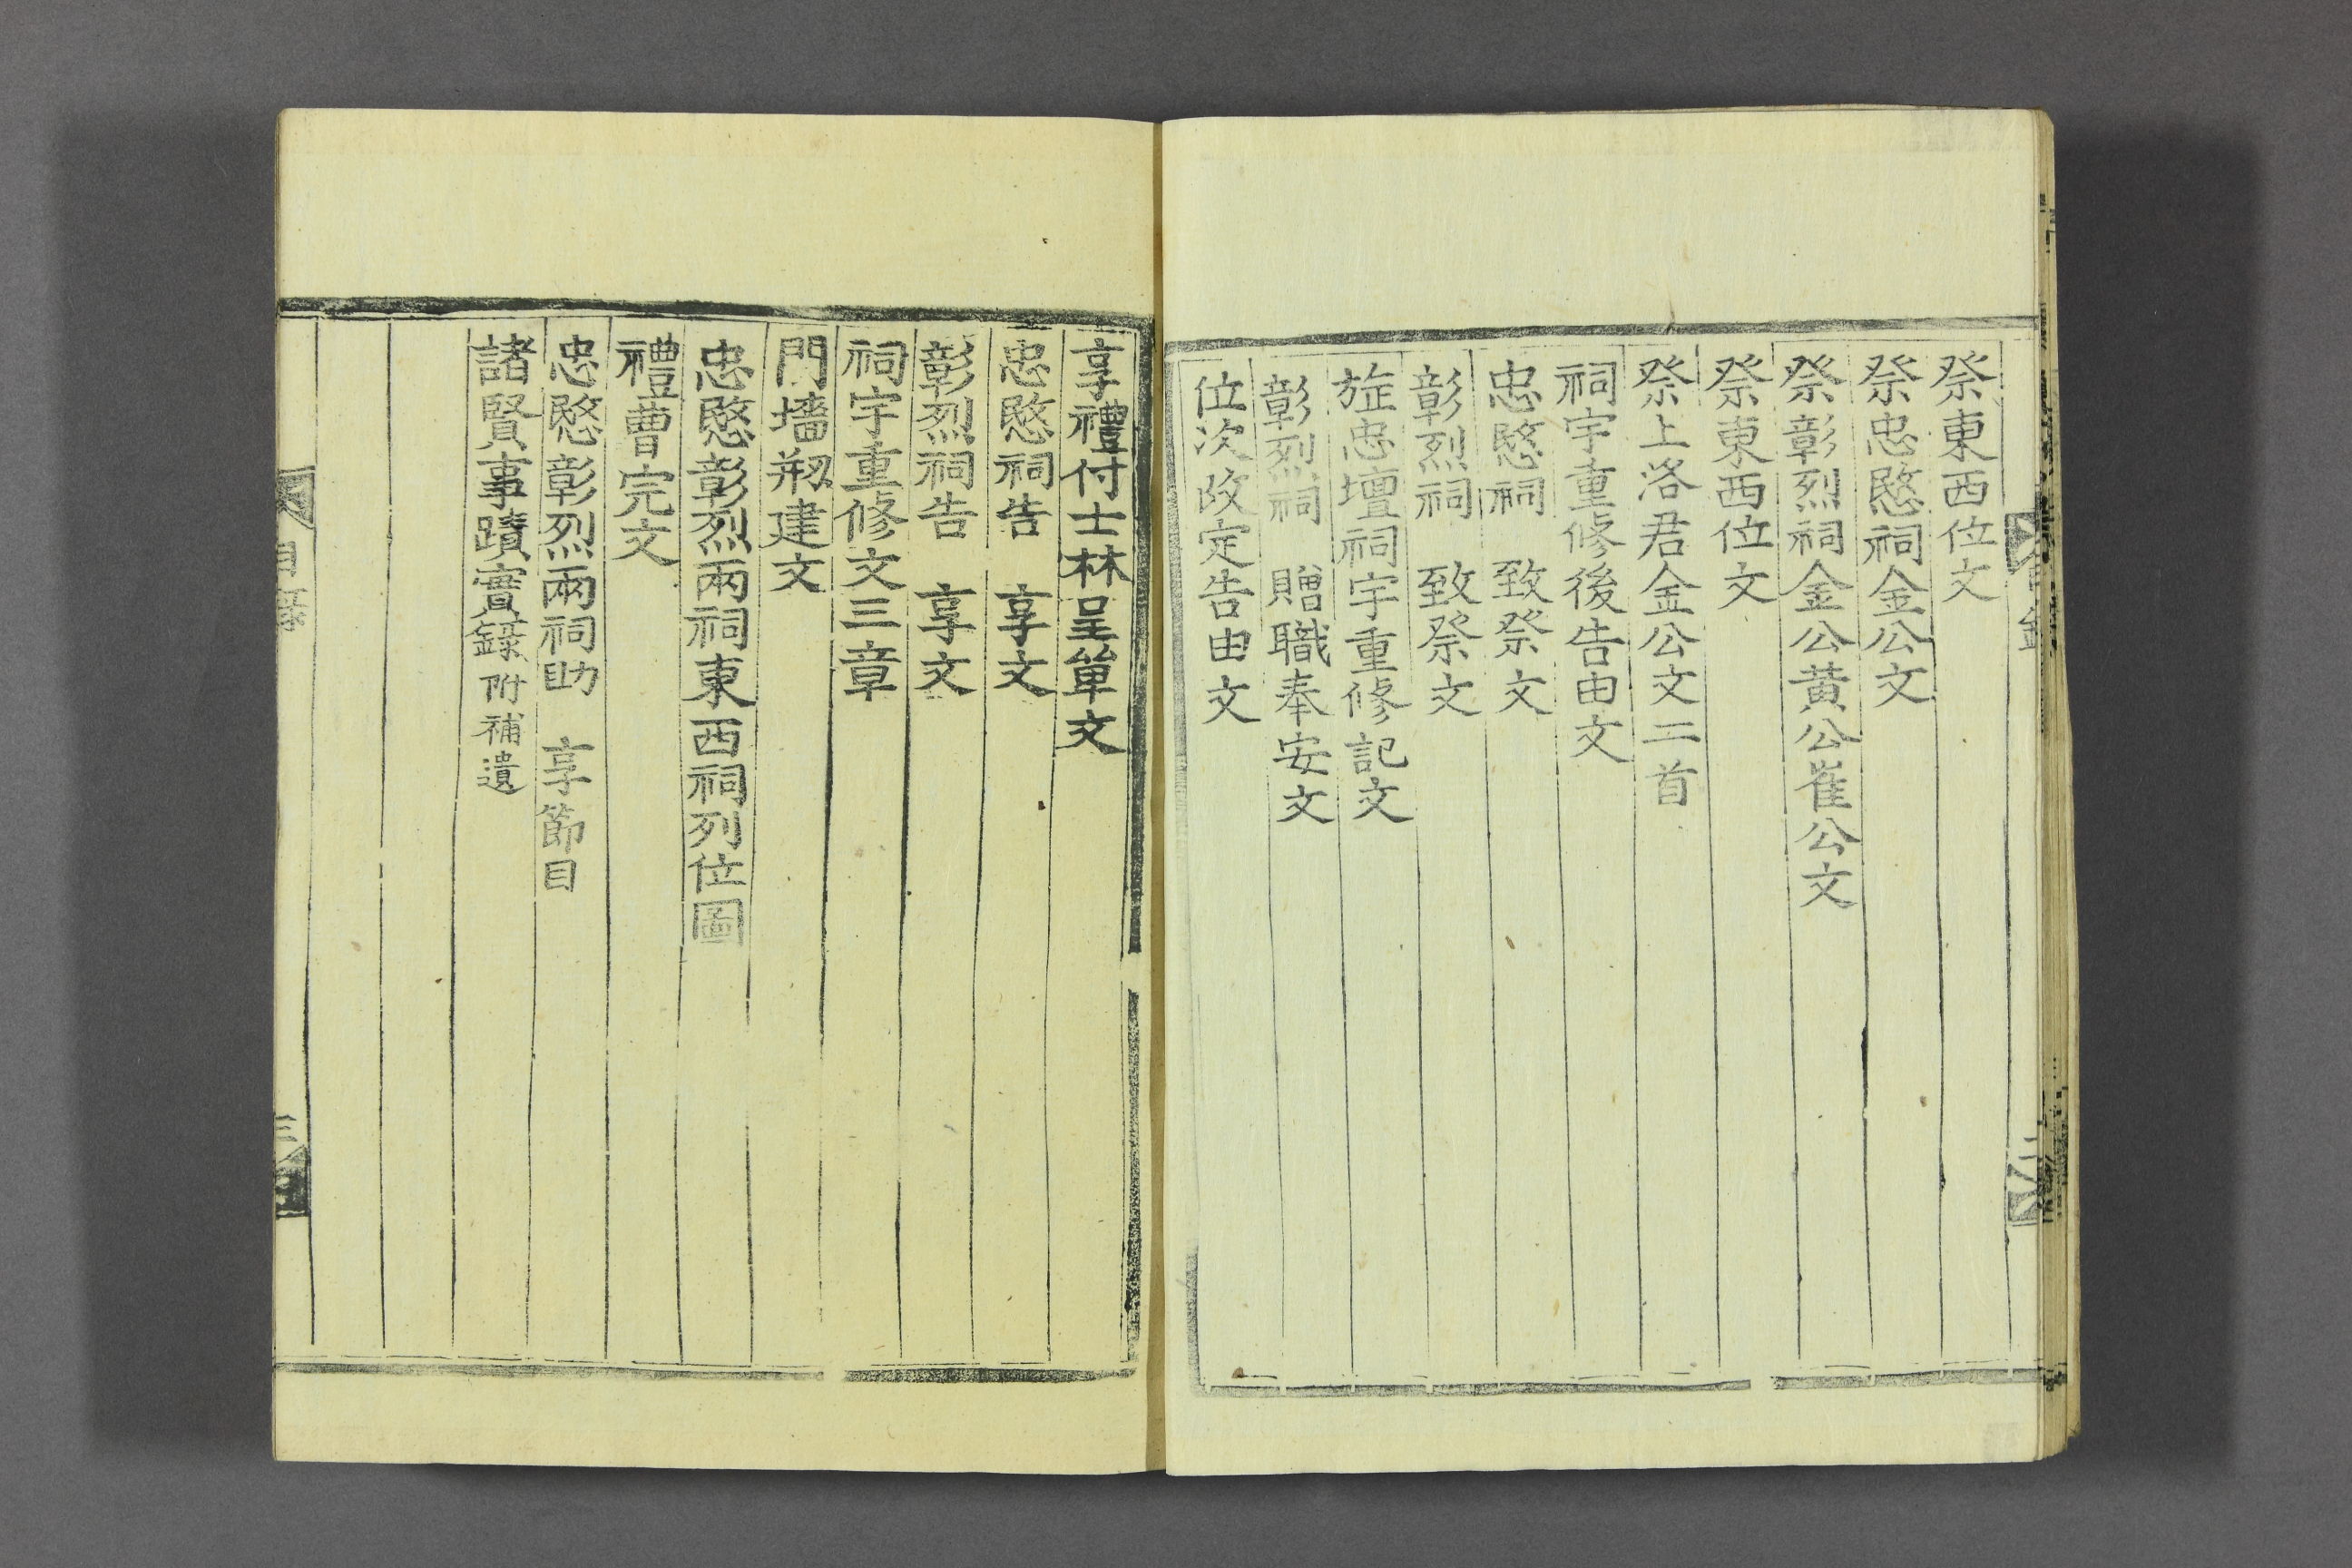 祭東西位文
祭忠愍祠金公文
祭彰烈祠金公黃公崔公文
祭東西位文
祭上洛君金公文二首
祠宇重修後告由文
忠愍祠 致祭文
彰烈祠 致祭文
旌忠壇祠宇重修記文
彰烈祠 贈職奉安文
位次改定告由文
享禮付士林呈單文
忠愍祠告 享文
彰烈祠告 享文
祠宇重修文三章
門墻刱建文
忠愍彰烈兩祠東西祠列位圖
禮曹完文
忠愍彰烈兩祠助 享節目
諸賢事蹟實錄附補遺
目錄
三